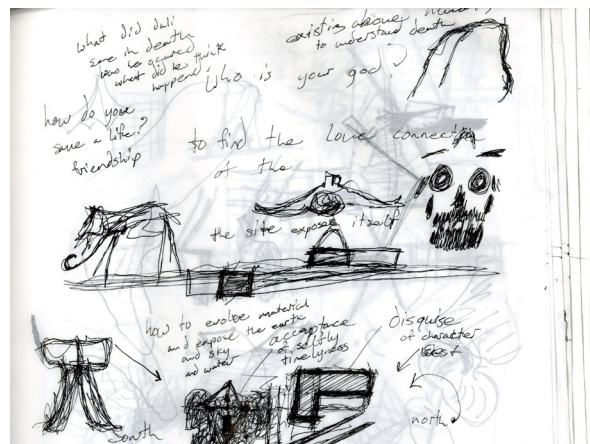 what did dali
see in death
was he scared
what did he think
happened
existing above
to understand death
Who is your god?
how do you
save a life?
friendship
to find the love connection
of the
the site exposes itself
how to evolve material
and expose the earth
and sky
and water
acceptance
of
timelyness
disguise
of character
south
north